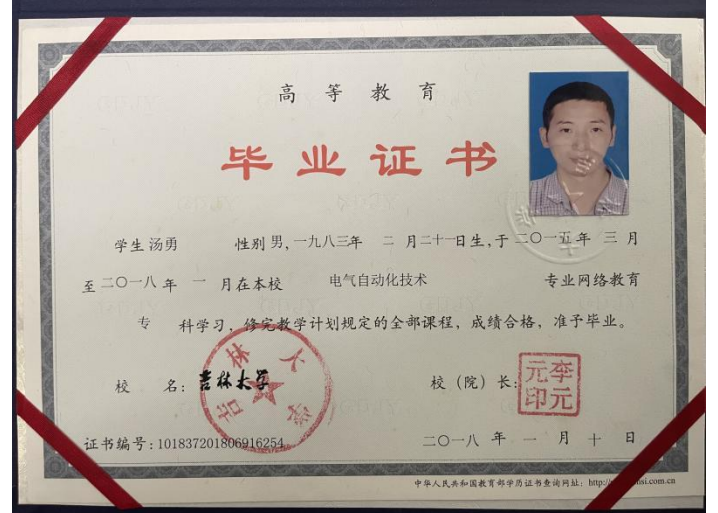 高等教育
毕业证书
学生 汤勇 性别 男, 一九八三年 二 月二十一日生, 于 二〇一五年 三 月
至 二〇一八 年 一 月在本校 电气自动化技术 专业网络教育
专 科学习, 修完教学计划规定的全部课程, 成绩合格, 准予毕业。
校 名: 吉林大学
吉林大学
校 (院) 长:
李元元印
证书编号: 101837201806916254
二〇一八 年 一 月 十 日
中华人民共和国教育部学历证书查询网址: http://
si.com.cn